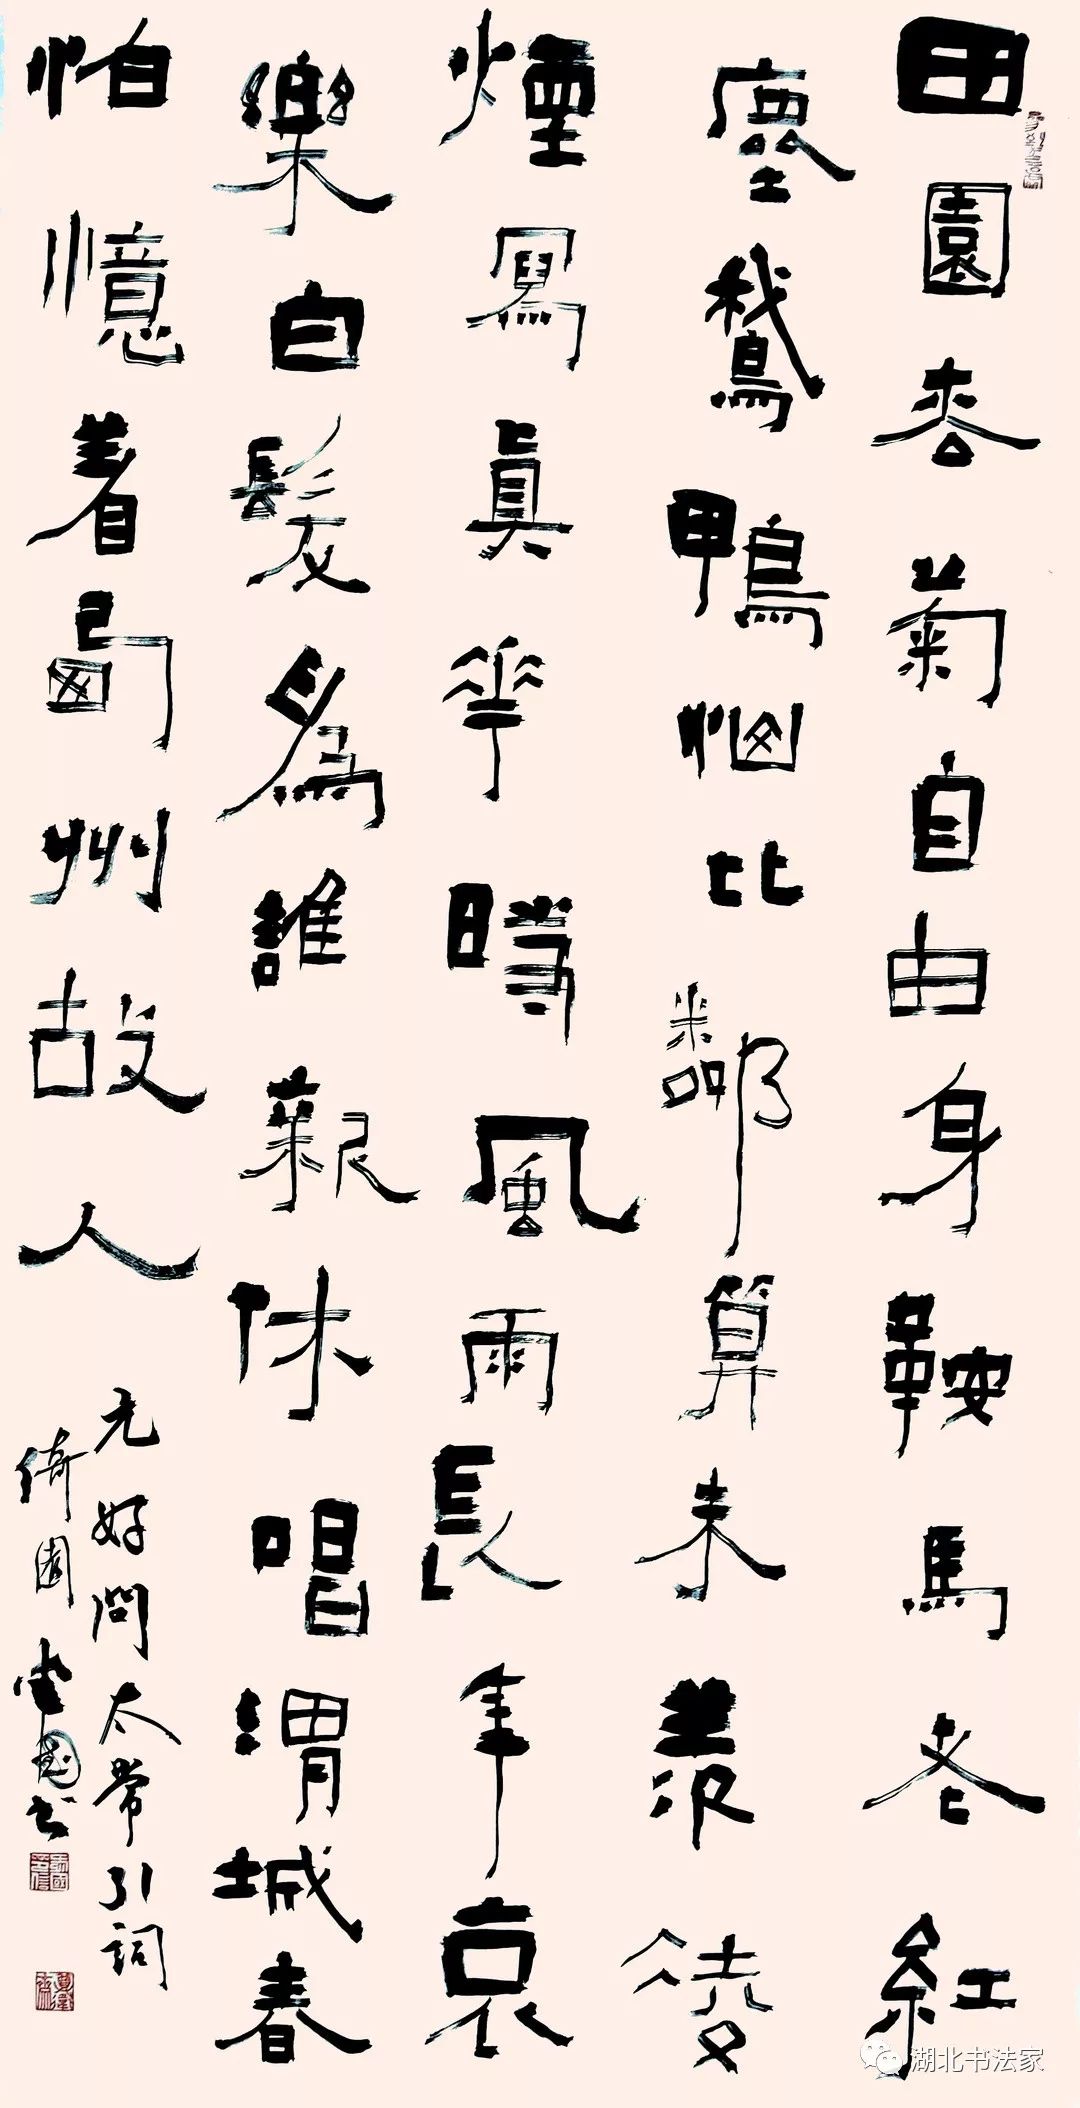 田園枀菊自由身鞍馬老紅
塵鵝鴨惱比鄰算未羨凌
煙寫眞華時風雨長年哀
樂白髮為誰艱休唱渭城春
怕憶着州故人
元好問太常引詞
倚園國書
湖北书法家